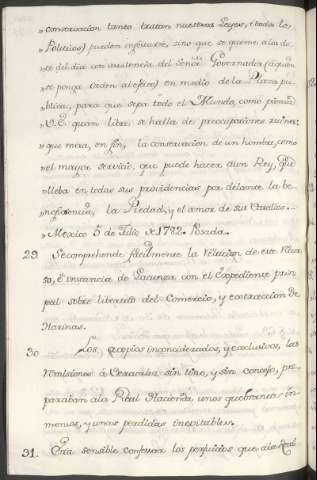 " conservacion tanto tratan nuestras Leyes, i todos los
" Politicos) pueden influirse, sino que se queme a las do-
" ce del dia con asistencia del Señor Governador (a quien
" se ponga orden al efecto) en medio de la Plaza pu-
" blica, para que sepa todo el Mundo, como piensa
" V.E. quan libre se halla de preocupaciones ruines:
" que mira, en fin, la conservacion de un hombre, como
" el mayor servicio, que puede hacer a un Rey, que
" lleba en todas sus providencias por delante la be-
" neficencia, la Piedad, y el amor de sus Vasallos...
" Mexico 5 de Julio de 1782. Posada.
29. Se comprehende facilmente la relacion de este
so, é instancia de con el Expediente prin-
pal sobre libertad del Comercio, y extraccion de
Harinas.
30. Los acopios inconsiderados, y exclusivos, las
remisiones á Veracruz sin tino, y sin consejo, pre-
paraban a la Real Hacienda unos quebrantos in-
mensos, y unas perdidas inevitables.
31. Era sensible confesar los perjuicios que a la Real